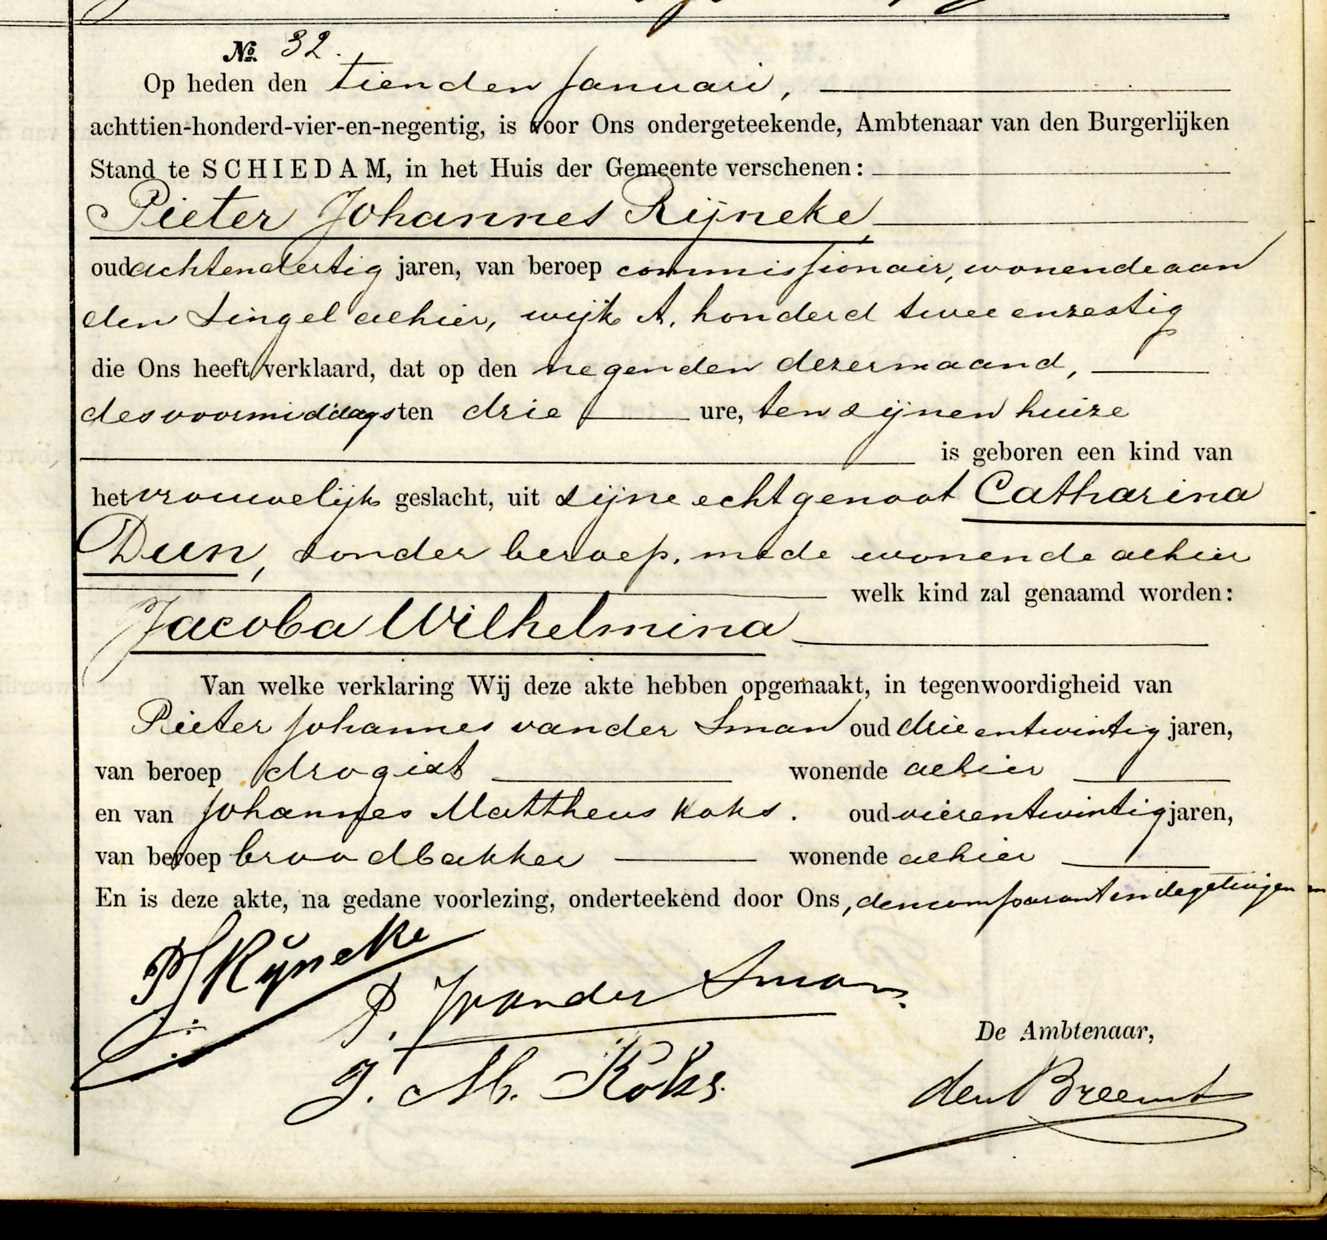 No. 32.
Op heden den tienden Januari,
achttien-honderd-vier-en-negentig, is voor Ons ondergeteekende, Ambtenaar van den Burgerlijken
Stand te SCHIEDAM, in het Huis der Gemeente verschenen:
Pieter Johannes Rijneke,
oud achtendertig jaren, van beroep commissionair, wonende aan
den Singel alhier, wijk A, honderd twee enzestig
die Ons heeft verklaard, dat op den negenden dezer maand,
des voormiddags ten drie ure, ten zijnen huize
is geboren een kind van
het vrouwelijk geslacht, uit zijne echtgenoot Catharina
Dun, zonder beroep, mede wonende alhier
welk kind zal genaamd worden:
Jacoba Wilhelmina
Van welke verklaring Wij deze akte hebben opgemaakt, in tegenwoordigheid van
Pieter Johannes van der Sman oud drie entwintig jaren,
van beroep drogist wonende alhier
en van Johannes Mattheus Koks. oud vierentwintig jaren,
van beroep broodbakker wonende alhier
En is deze akte, na gedane voorlezing, onderteekend door Ons, den comparant en de getuigen
PJ Rijneke
P. J van der Sman.
De Ambtenaar,
J. M. Koks.